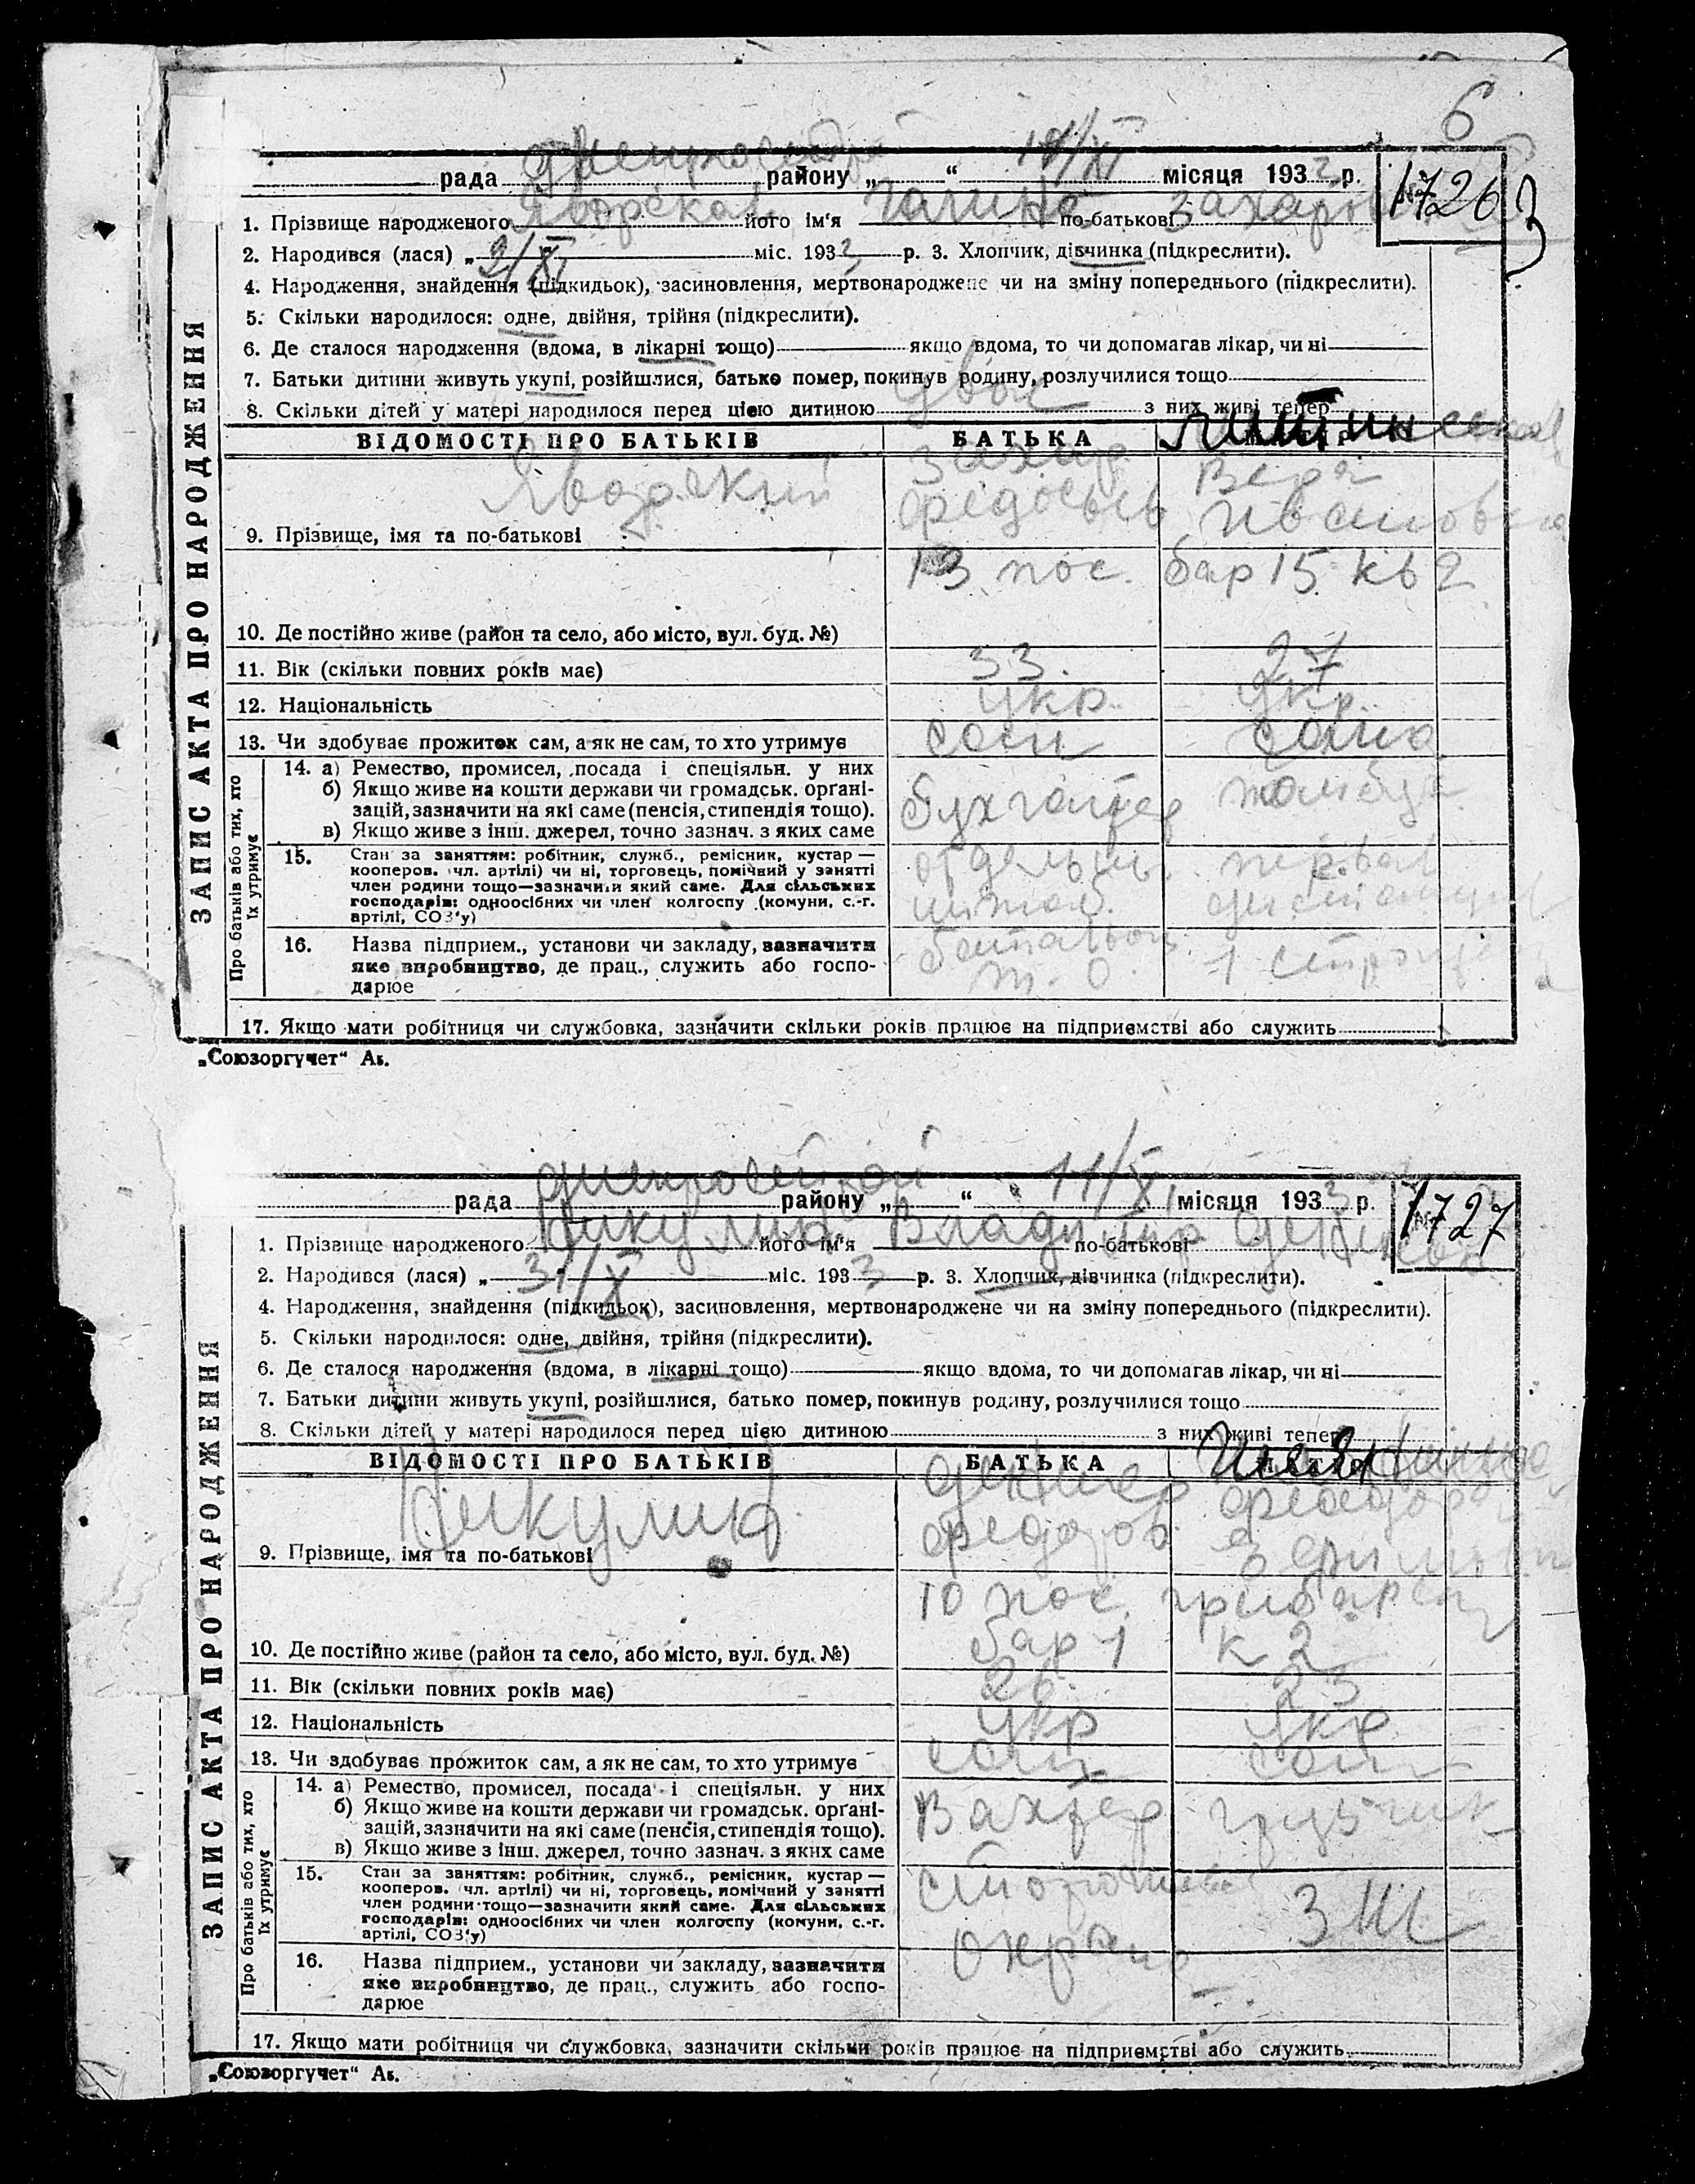 6
рада Днепрострой району „ “ 11/XI місяця 1933 р. № 1726
1. Прізвище народженого Яворская його ім'я Галина по-батькові Захаров
2. Народився (лася) „ 2/XI міс. 1933 р. 3. Хлопчик, дівчинка (підкреслити).
4. Народження, знайдення (підкидьок), засиновлення, мертвонароджене чи на зміну попереднього (підкреслити).
5. Скільки народилося: одне, двійня, трійня (підкреслити).
6. Де сталося народження (вдома, в лікарні тощо) якщо вдома, то чи допомагав лікар, чи ні
7. Батьки дитини живуть укупі, розійшлися, батько помер, покинув родину, розлучилися тощо
8. Скільки дітей у матері народилося перед цією дитиною двое з них живі тепер
ЗАПИС АКТА ПРО НАРОДЖЕННЯ
ВІДОМОСТІ ПРО БАТЬКІВ БАТЬКА
Яворский Захар Вера
Федосеев Ивановна
9. Прізвище, імя та по-батькові
13 пос. бар 15 кв 2
10. Де постійно живе (район та село, або місто, вул. буд. №)
11. Вік (скільки повних років має) 33. 27
12. Національність укр. укр.
13. Чи здобуває прожиток сам, а як не сам, то хто утримує сам сама
Про батьків або тих, хто їх утримує
14. а) Ремество, промисел, посада і спеціяльн. у них
б) Якщо живе на кошти держави чи громадськ. орґані-
зацій, зазначити на які саме (пенсія, стипендія тощо).
в) Якщо живе з інш. джерел, точно зазнач. з яких саме
бухгалтер
15. Стан за заняттям: робітник, служб., ремісник, кустар —
кооперов. (чл. артілі) чи ні, торговець, помічний у занятті
член родини тощо—зазначити який саме. Для сільських
господарів: одноосібних чи член колгоспу (комуни, с.-г.
артілі, СОЗ'у)
16. Назва підприєм., установи чи закладу, зазначити
яке виробництво, де прац., служить або госпо-
дарює
17. Якщо мати робітниця чи службовка, зазначити скільки років працює на підприємстві або служить
„Союзоргучет“ Аз.
рада Днепрострой району „ “ 11/XI місяця 1933 р. № 1727
1. Прізвище народженого Никулин його ім'я Владимир по-батькові
2. Народився (лася) „ 31/X міс. 1933 р. 3. Хлопчик, дівчинка (підкреслити).
4. Народження, знайдення (підкидьок), засиновлення, мертвонароджене чи на зміну попереднього (підкреслити).
5. Скільки народилося: одне, двійня, трійня (підкреслити).
6. Де сталося народження (вдома, в лікарні тощо) якщо вдома, то чи допомагав лікар, чи ні
7. Батьки дитини живуть укупі, розійшлися, батько помер, покинув родину, розлучилися тощо
8. Скільки дітей у матері народилося перед цією дитиною з них живі тепер
ЗАПИС АКТА ПРО НАРОДЖЕННЯ
ВІДОМОСТІ ПРО БАТЬКІВ БАТЬКА
Никулин Федоров
9. Прізвище, імя та по-батькові
10 пос.
10. Де постійно живе (район та село, або місто, вул. буд. №) бар 1 к 2
11. Вік (скільки повних років має) 26 23
12. Національність укр укр
13. Чи здобуває прожиток сам, а як не сам, то хто утримує сам сам
Про батьків або тих, хто їх утримує
14. а) Ремество, промисел, посада і спеціяльн. у них
б) Якщо живе на кошти держави чи громадськ. орґані-
зацій, зазначити на які саме (пенсія, стипендія тощо).
в) Якщо живе з інш. джерел, точно зазнач. з яких саме
Вахтер грузчик
15. Стан за заняттям: робітник, служб., ремісник, кустар —
кооперов. (чл. артілі) чи ні, торговець, помічний у занятті
член родини тощо—зазначити який саме. Для сільських
господарів: одноосібних чи член колгоспу (комуни, с.-г.
артілі, СОЗ'у)
охрана
16. Назва підприєм., установи чи закладу, зазначити
яке виробництво, де прац., служить або госпо-
дарює
17. Якщо мати робітниця чи службовка, зазначити скільки років працює на підприємстві або служить
„Союзоргучет“ Аз.